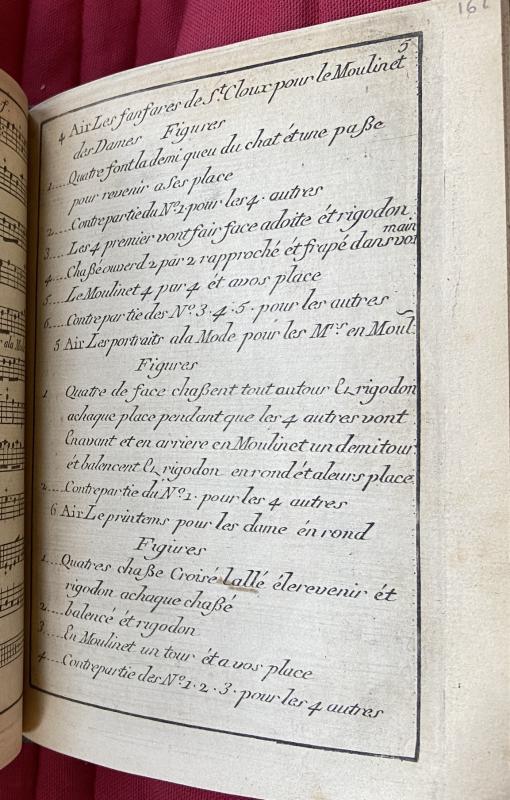 162
5
4 Air Les fanfares de St. Cloux pour le Moulinet
des Dames Figures
1.... Quatre font la demi queu du chat ét une paße
pour revenir a ses place
2.... Contrepartie du No. 1. pour les 4. autres
3.... Les 4 premier vont fair face adoite ét rigodon
4.... Chaße ouverd 2 par 2 rapproché ét frapé dans voi
main
5.... Le Moulinet 4 par 4 ét avos place
6.... Contrepartie des No. 3. 4. 5. pour les autres
5 Air Les portraits ala Mode pour les Mrs. en Moul:
Figures
1 Quatre de face chaßent tout autour Et rigodon
achaque place pendant que les 4 autres vont
Enavant et en arriere en Moulinet un demi tour
ét balencent Et rigodon en rond ét aleurs place
2.... Contrepartie du No. 1. pour les 4 autres
6 Air Le printems pour les dame én rond
Figures
1.... Quatres chaße Croisé lallé élerevenir ét
rigodon achaque chaßé
2.... balencé ét rigodon
3.... En Moulinet un tour ét a vos place
4.... Contrepartie des No. 1. 2. 3. pour les 4 autres